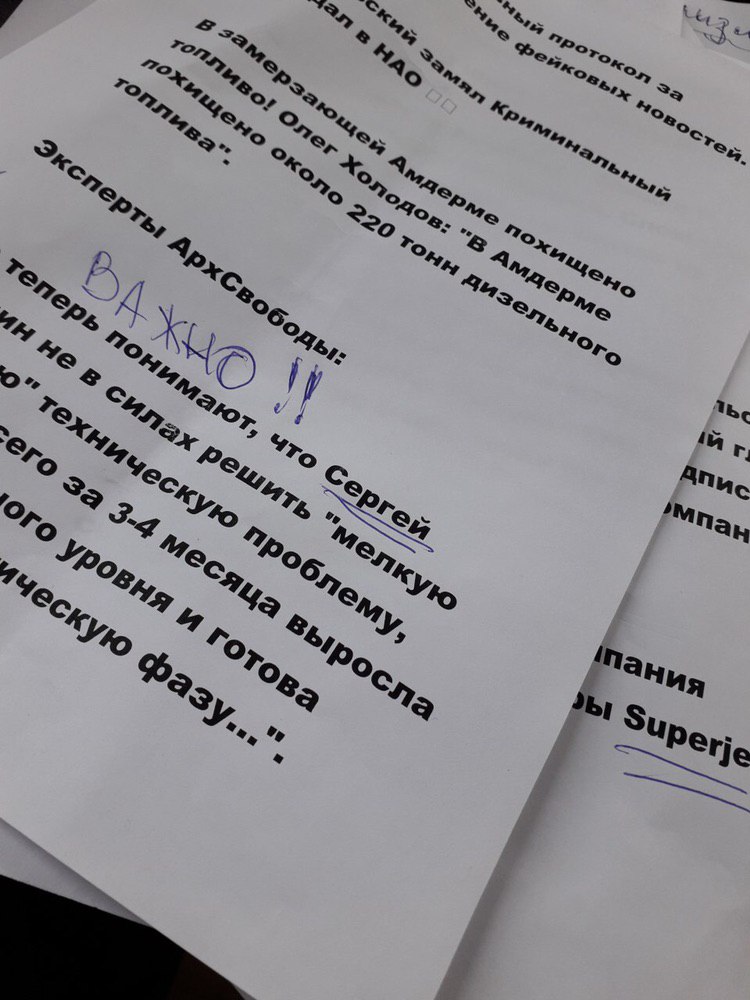 протокол за
фейковых новостей.
замял Криминальный
в НАО
В замерзающей Амдерме похищено
топливо! Олег Холодов: "В Амдерме
похищено около 220 тонн дизельного
топлива".
Эксперты АрхСвободы:
ВАЖНО!!
теперь понимают, что Сергей
не в силах решить "мелкую
техническую проблему,
за 3-4 месяца выросла
уровня и готова
фазу...".
Superje